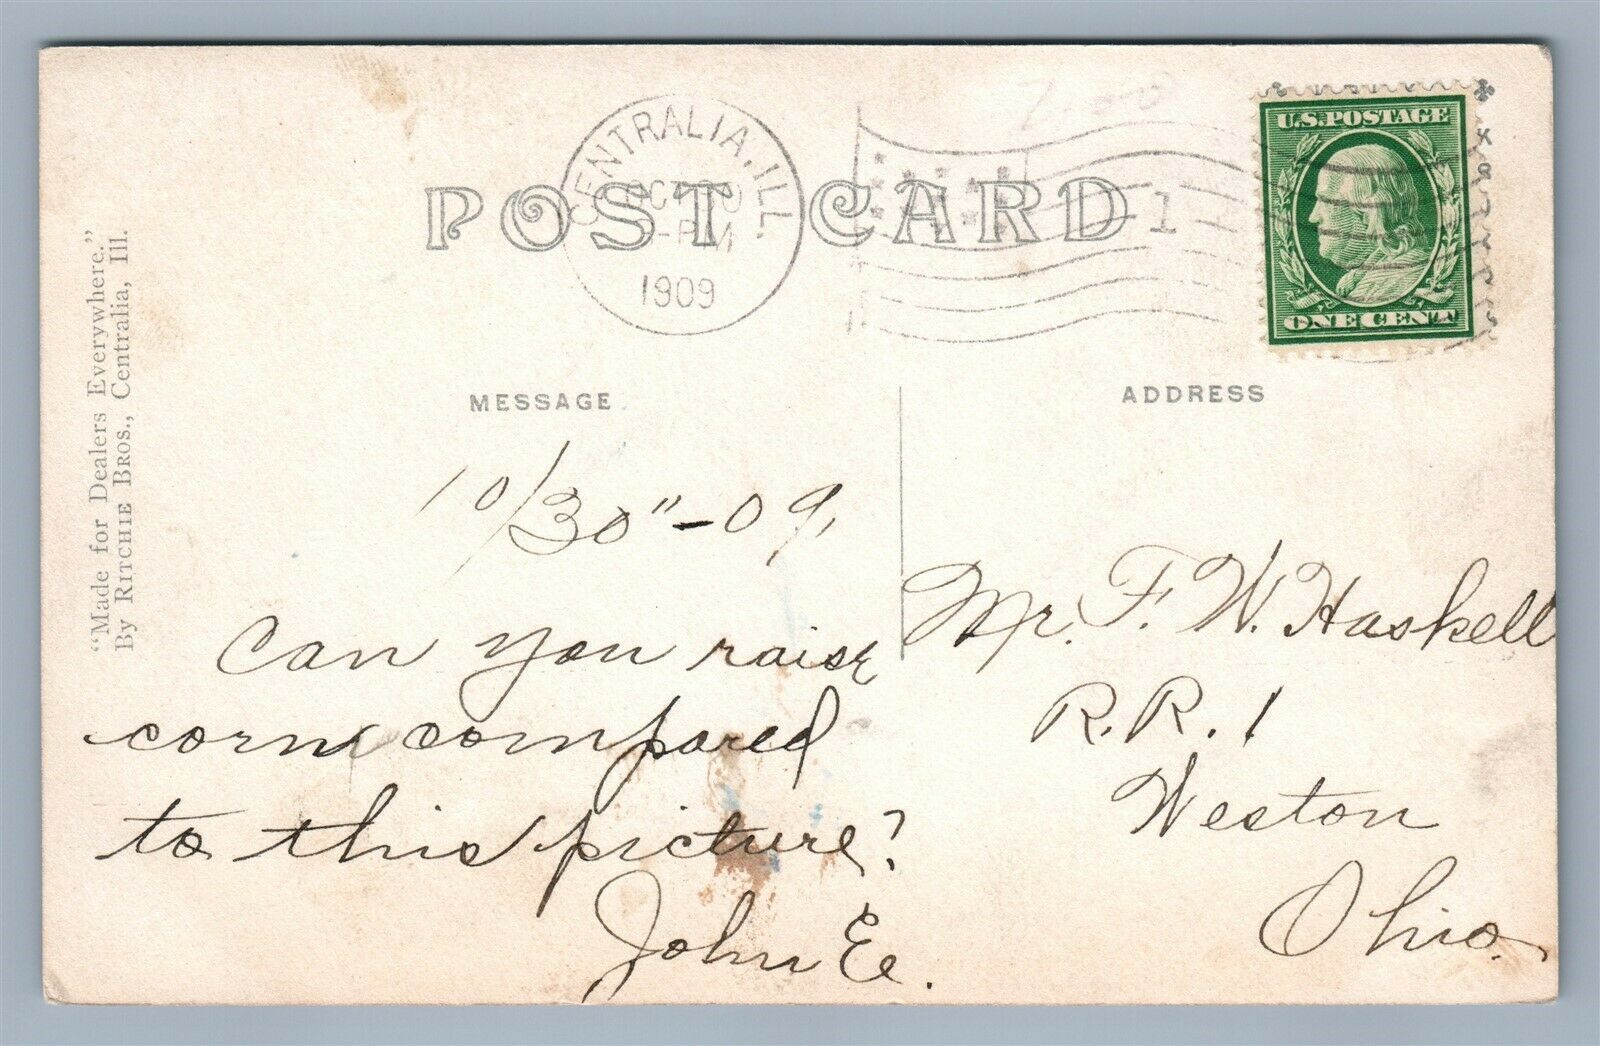 "Made for Dealers Everywhere."
By RITCHIE BROS., Centralia, Ill.
POST CARD
CENTRALIA, ILL.
OCT 30
PM
1909
1
U.S. POSTAGE
ONE CENT
MESSAGE
10/30"-09,
Can you raise
corn compared
to this picture?
John E.
ADDRESS
Mr. F. W. Haskell
R.R. 1
Weston
Ohio.